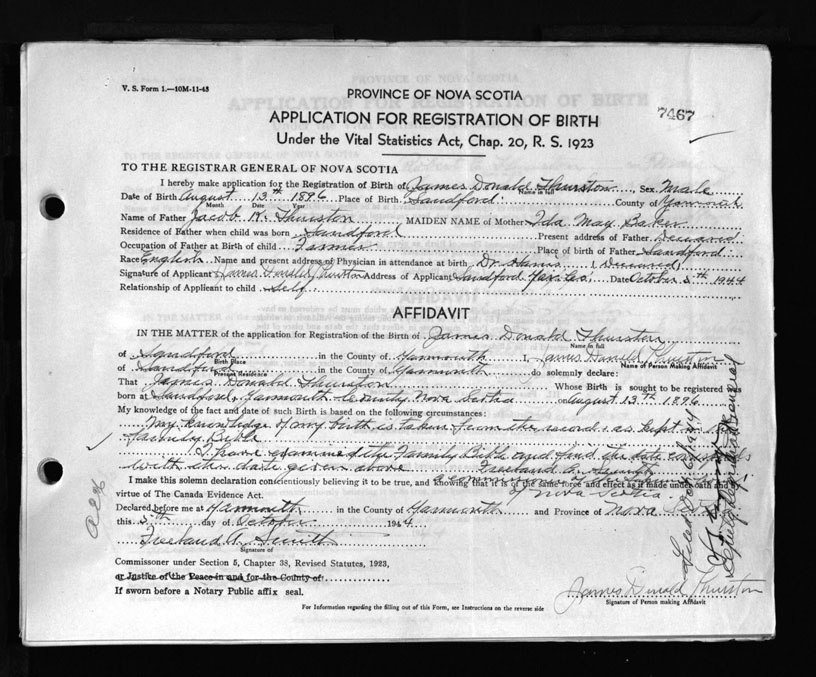 V. S. Form 1.—10M-11-43
PROVINCE OF NOVA SCOTIA
APPLICATION FOR REGISTRATION OF BIRTH
7467
Under the Vital Statistics Act, Chap. 20, R. S. 1923
TO THE REGISTRAR GENERAL OF NOVA SCOTIA
I hereby make application for the Registration of Birth of James Donald Thurston Sex Male
Name in full
Date of Birth August 13th 1896 Place of Birth Sandford County of Yarmouth
Month Date Year
Name of Father Jacob K. Thurston MAIDEN NAME of Mother Ida May Baker
Residence of Father when child was born Sandford Present address of Father Deceased
Occupation of Father at Birth of child Farmer Place of birth of Father Sandford
Race English Name and present address of Physician in attendance at birth Dr. Harris (Deceased)
Signature of Applicant James Donald Thurston Address of Applicant Sandford Yar. Co. Date October 5th 1944
Relationship of Applicant to child Self
AFFIDAVIT
IN THE MATTER of the application for Registration of the Birth of James Donald Thurston
Name in full
of Sandford in the County of Yarmouth I, James Donald Thurston
Birth Place Name of Person Making Affidavit
of Sandford in the County of Yarmouth do solemnly declare:
Present Residence
That James Donald Thurston Whose Birth is sought to be registered was
born at Sandford, Yarmouth County Nova Scotia on August 13th 1896
My knowledge of the fact and date of such Birth is based on the following circumstances:
My knowledge of my birth is taken from the record as kept in the
Family Bible
I have examined the Family Bible and find the date corresponds
with the date given above Freeland A. Smith
A Commissioner of the Supreme Court
of Nova Scotia.
I make this solemn declaration conscientiously believing it to be true, and knowing that it is of the same force and effect as if made under oath and by
virtue of The Canada Evidence Act.
Declared before me at Yarmouth in the County of Yarmouth and Province of Nova Scotia
this 5th day of October 1944
Freeland A. Smith
Signature of
Commissioner under Section 5, Chapter 38, Revised Statutes, 1923,
or Justice of the Peace in and for the County of
If sworn before a Notary Public affix seal.
James Donald Thurston
Signature of Person making Affidavit
For Information regarding the filling out of this Form, see Instructions on the reverse side
Deputy Registrar General